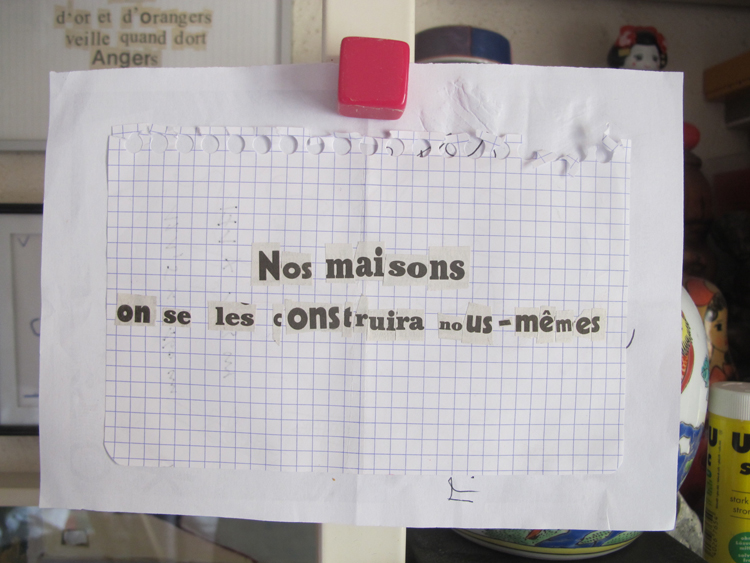 d'or et d'Orangers
veille quand dort
Angers
Nos maisons
on se les construira nous-mêmes
U
stark